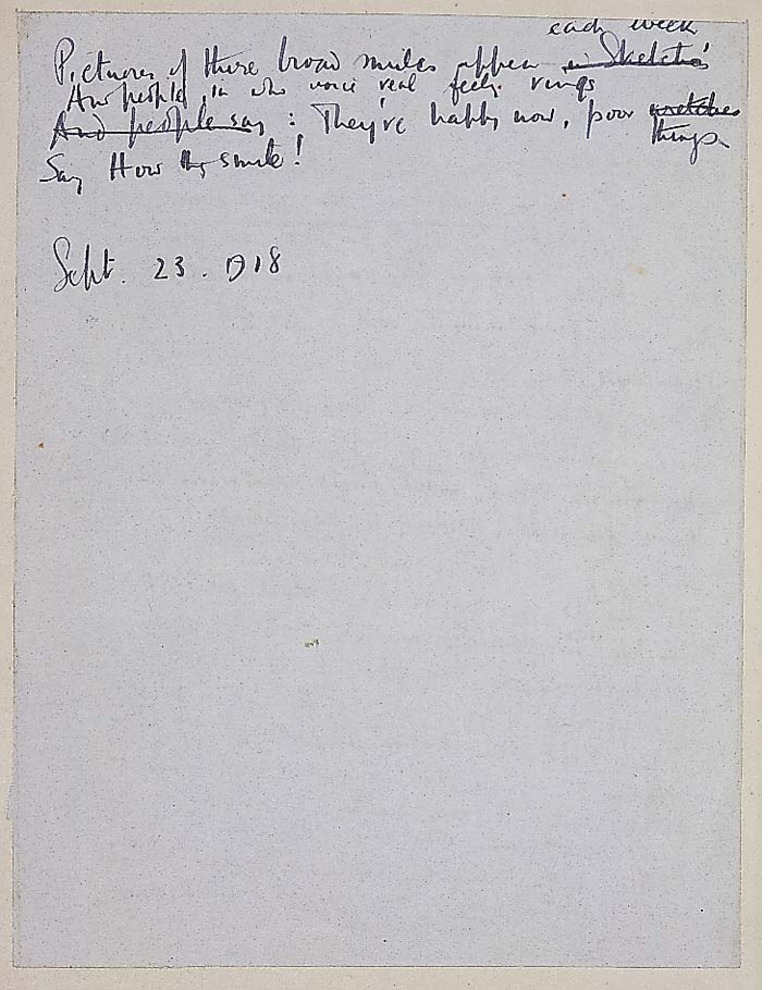 each week
Pictures of these broad smiles appear in Sketches
And people in whose voice real feeling rings
And people say : They're happy now, poor wretches
things
Say How they smile!
Sept. 23. 1918